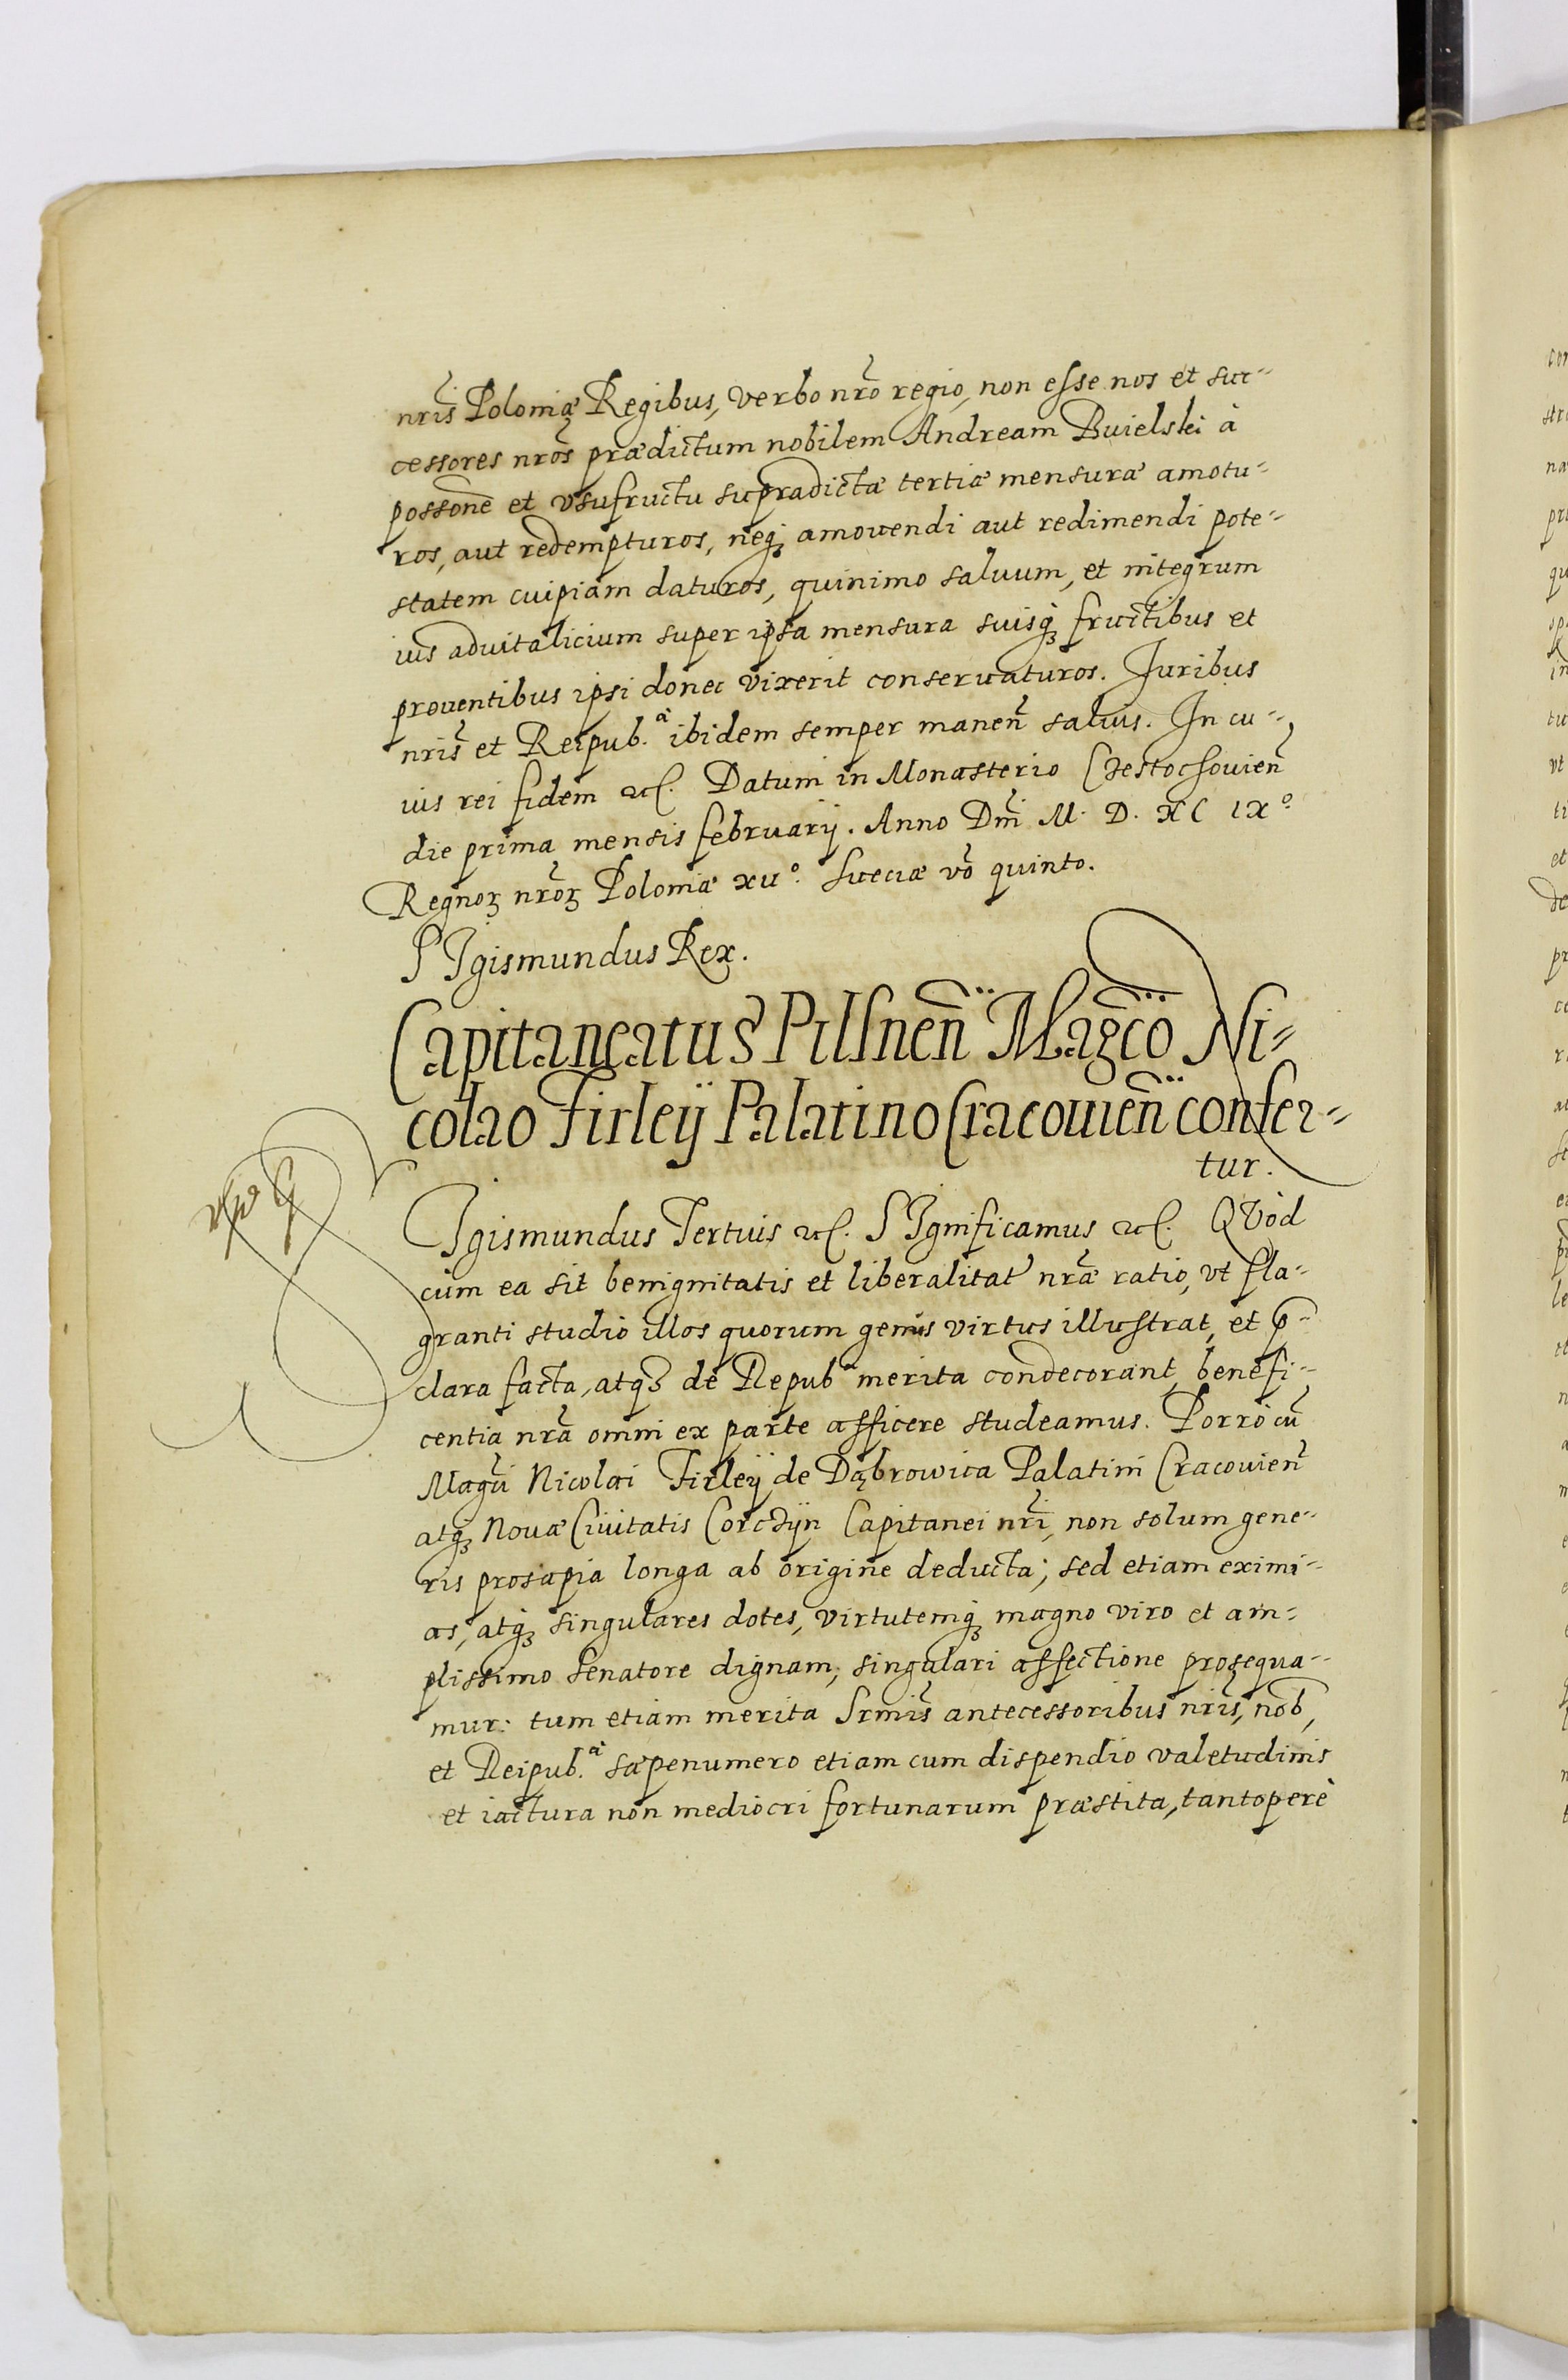 nris̃ Poloniæ Regibus, verbo nrõ regio, non esse nos et suc-
cessores nrõs prædictum nobilem Andream Buielski à
possonẽ et vsufructu supradictæ tertiæ mensuræ amotu-
ros, aut redempturos, neqꝫ amouendi aut redimendi pote-
statem cuipiam daturos, quinimo saluum, et integrum
ius aduitalicium super ipsa mensura suisqꝫ fructibus et
prouentibus ipsi donec vixerit conseruaturos. Juribus
nris̃ et Reipub.ᵃᵉ ibidem semper maneñ saluis. In cu-
ius rei fidem ꝛc. Datum in Monasterio Czestochouieñ
die prima mensis februarij. Anno Dm̃i M. D. XC IXº
Regnoꝝ nrõꝝ Poloniæ xuº. Sueciæ võ quinto.
SIgismundus Rex.
Capitaneatus Pilsneñ Mag̃co Ni-
colao Firleij Palatino Cracouieñ confer-
tur.
SIgismundus Tertius ꝛc. SIgnificamus ꝛc. QVòd
cùm ea sit benignitatis et liberalitat' nrã̃æ ratio, vt fla-
granti studio illos quorum genus virtus illustrat, et p̃-
clara facta, atqꝫ de Repub merita condecorant, benefi-
centia nrã omni ex parte afficere studeamus. Porrò cũ
Magci̇̃ Nicolai Firleij de Dąbrowica Palatini Cracouieñ
atqꝫ Nouæ Ciuitatis Corczyn Capitanei nrĩ, non solum gene-
ris prosapia longa ab origine deducta; sed etiam eximi-
as, atqꝫ singulares dotes, virtutemqꝫ magno viro et am-
plissimo senatore dignam, singulari affectione prosequa-
mur: tum etiam merita Srmis̃ antecessoribus nris̃, nob̃,
et Reipub.ᵃᵉ sæpenumero etiam cum dispendio valetudinis
et iactura non mediocri fortunarum præstita, tantoperè